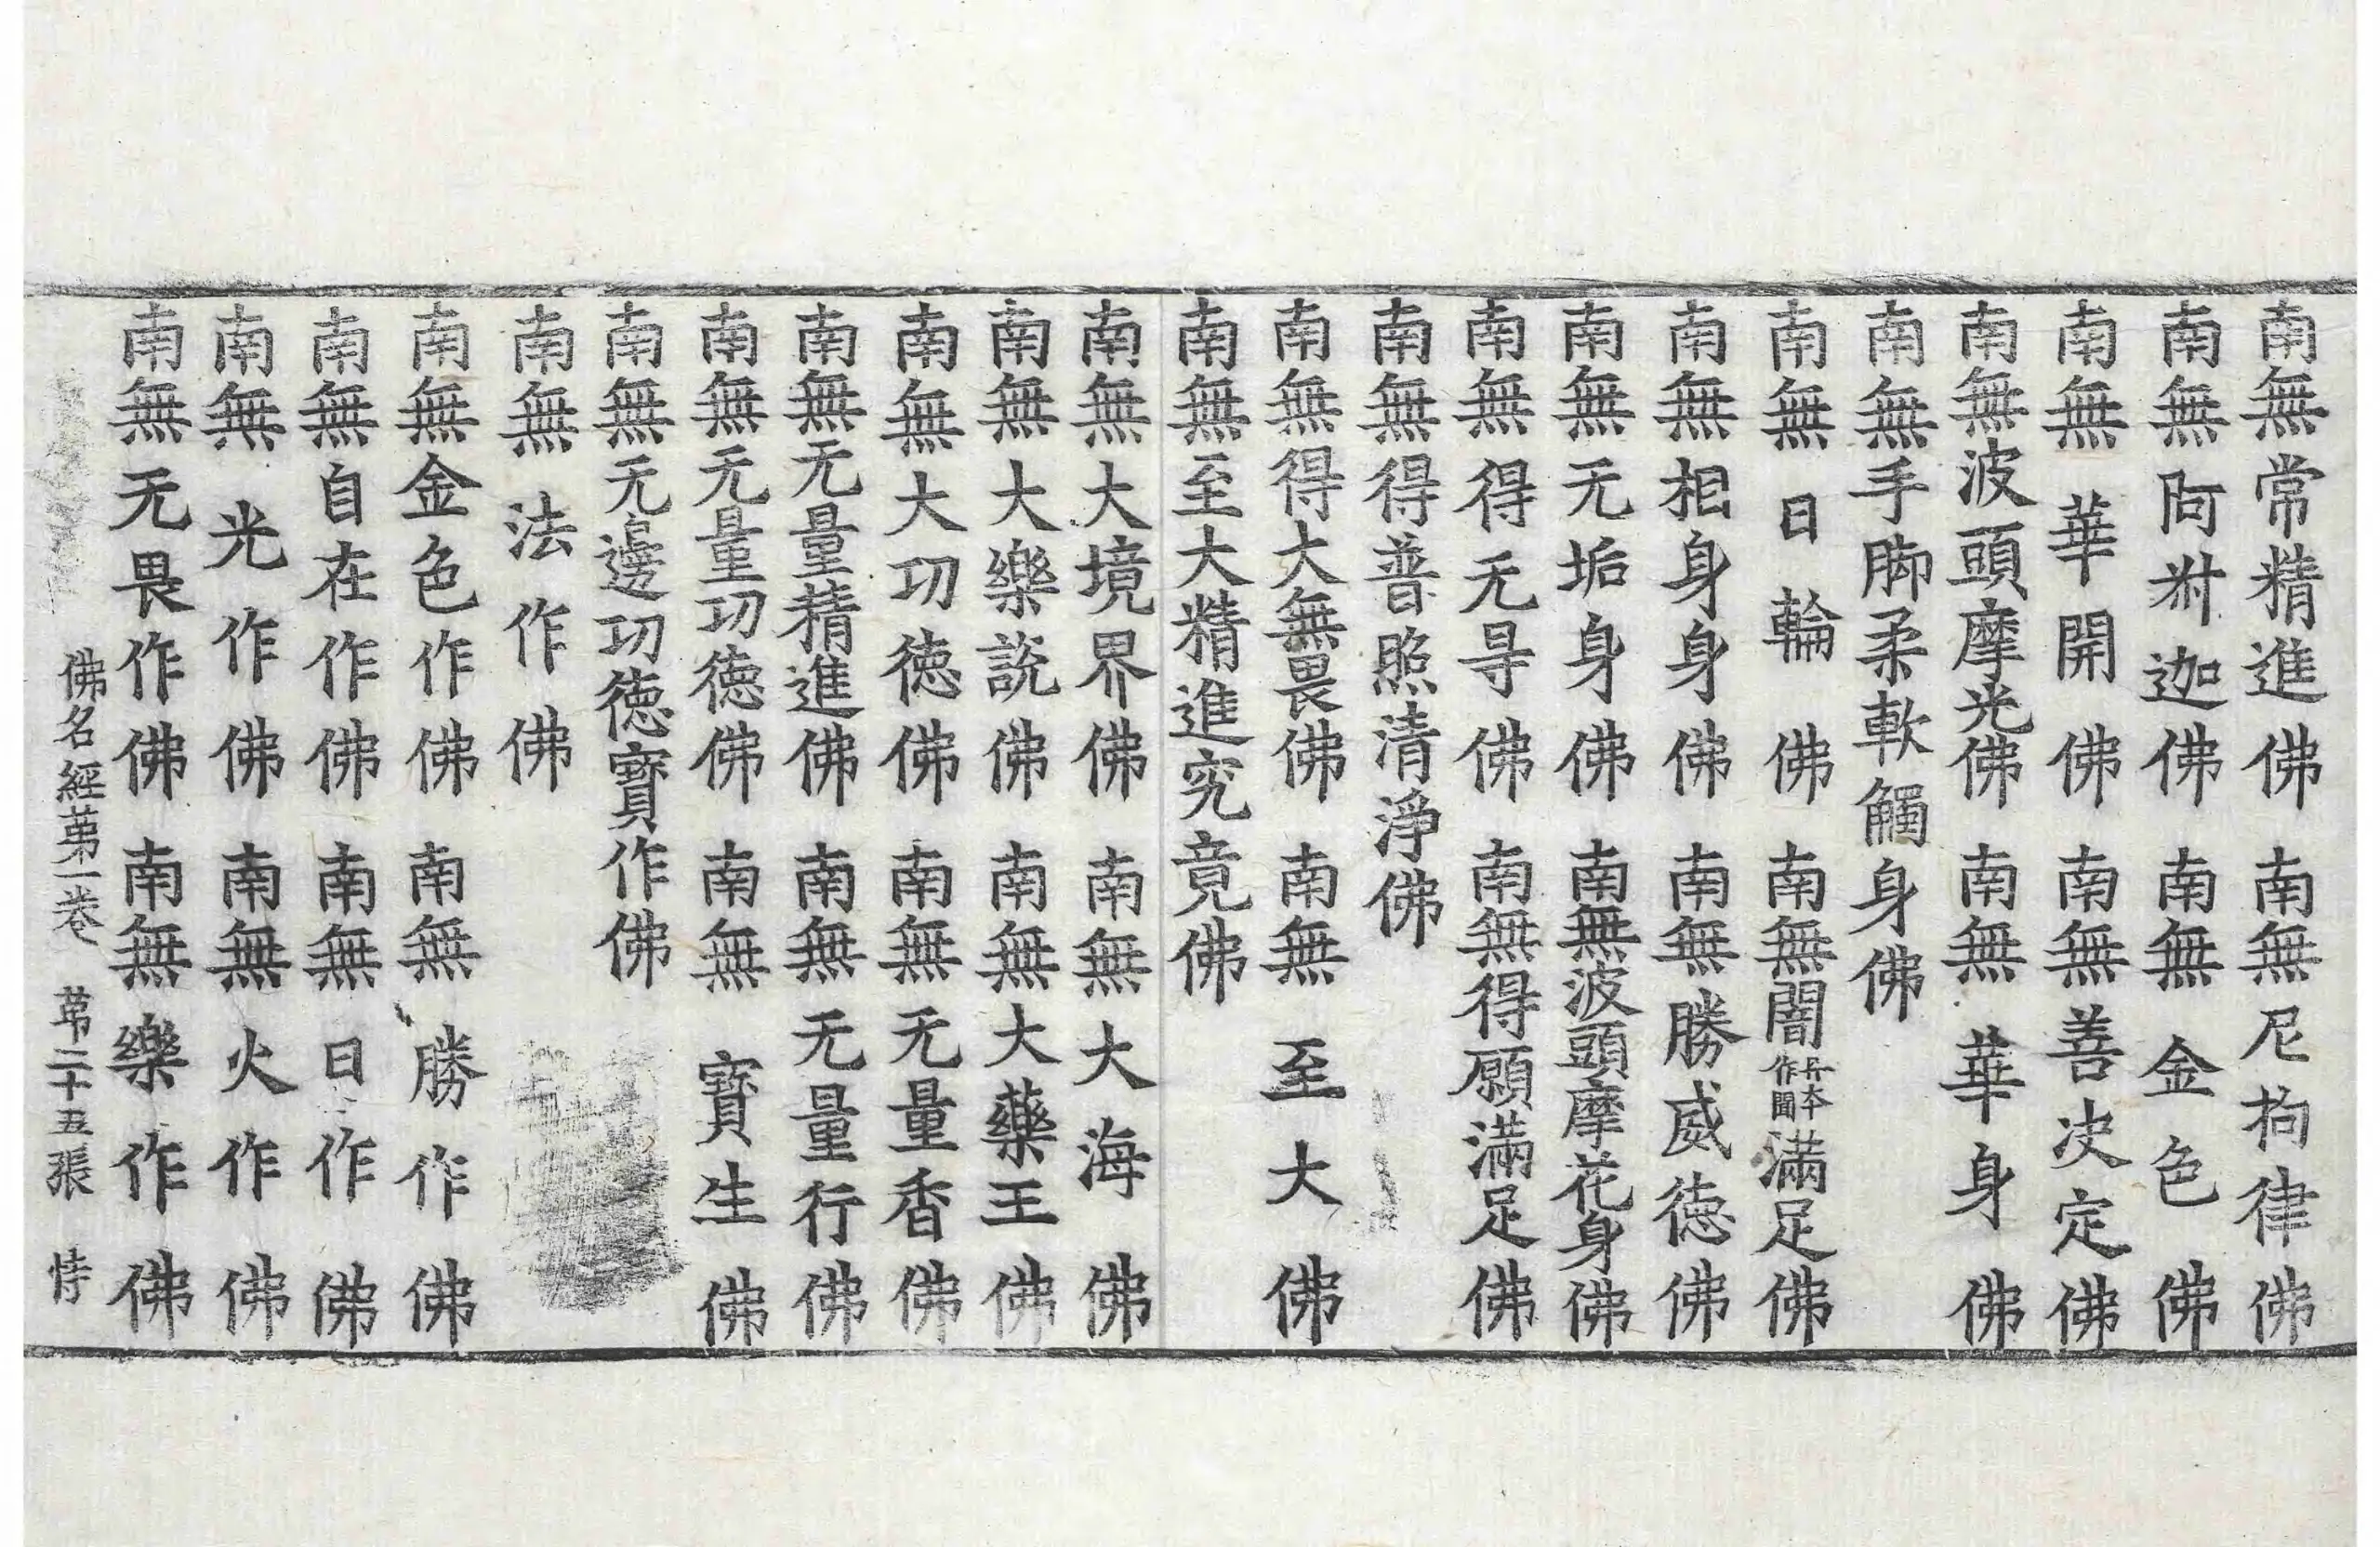 南無常精進佛 南無尼拘律佛
南無阿󠄁尗迦佛 南無金色佛
南無華開佛 南無善决定佛
南無波頭摩光佛 南無華身佛
南無手脚柔軟觸身佛
南無日輪佛 南無闇丹本作聞滿足佛
南無相身身佛 南無勝威德佛
南無无垢身佛 南無波頭摩花身佛
南無得无㝵佛 南無得願滿足佛
南無得普照清淨佛
南無得大無畏佛 南無至大佛
南無至大精進究竟佛
南無大境界佛 南無大海佛
南無大樂說佛 南無大藥王佛
南無大功德佛 南無无量香佛
南無无量精進佛 南無无量行佛
南無无量功德佛 南無寶生佛
南無无邊功德寶作佛
南無法作佛
南無金色作佛 南無勝作佛
南無自在作佛 南無日作佛
南無光作佛 南無火作佛
南無无畏作佛 南無樂作佛
佛名經第一卷 第二十五張 恃